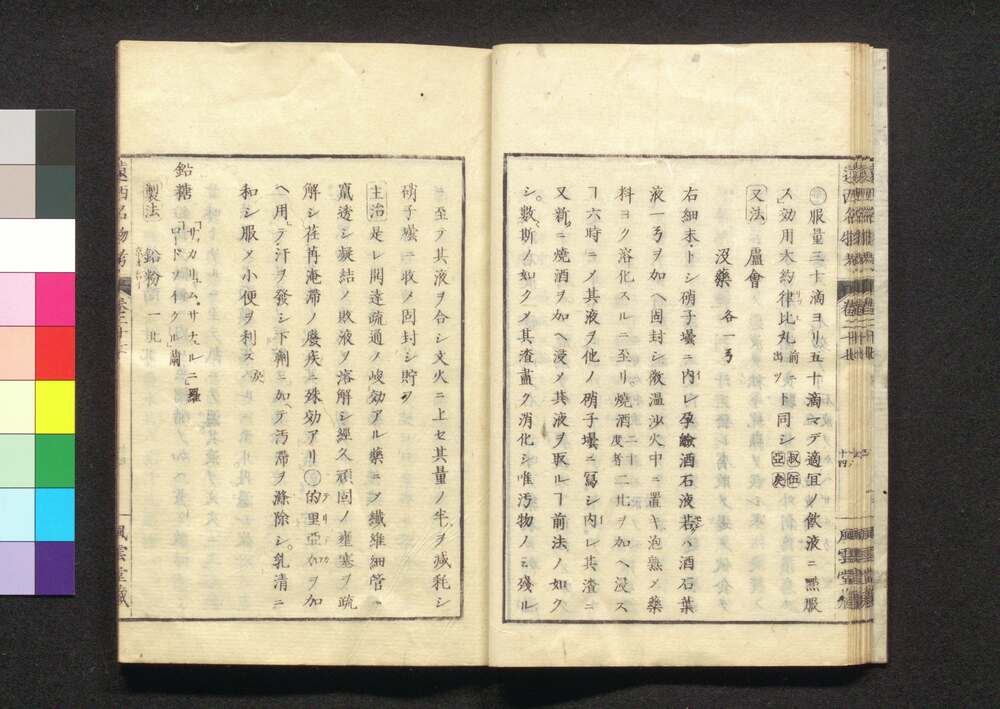 服量三十滴ヨリ五十滴マデ適宜ノ飲液ニ點服
ス効用大約律比丸前出ツト同シ
又法 蘆會
沒藥 各一ヲ
右細末トシ硝子壜ニ内レ孕鹼酒石液若クハ酒石葉
液一ヲヲ加ヘ固封シ微温沙火中ニ置キ泡熟メ藥
料ヨク溶化スルニ至リ燒酒二十度者二北ヲ加ヘ浸ス
ヿ六時ニメ其液ヲ他ノ硝子壜ニ冩シ内レ其渣ニ
又新ニ燒酒ヲ加ヘ浸メ其液ヲ取ルヿ前法ノ如ク
シ數斯ノ如クメ其渣盡ク消化シ唯汚物ノミ殘ル
ニ至テ其液ヲ合シ文火ニ上セ其量ノ半ヲ减耗シ
硝子壜ニ收メ固封シ貯フ
主治 是レ開達疏通ノ峻効アル藥ニメ纎維細管ニ
竄透シ凝結ノ敗液ヲ溶解シ經久頑固ノ壅塞ヲ疏
解シ荏苒淹滯ノ廢疾ニ殊効アリ 的里亞加ヲ加
ヘ用テ汗ヲ發シ下劑ニ加テ汚滯ヲ滌除シ乳清ニ
和シ服メ小便ヲ利ス
鉛糖 サッカリュム、サチュルニ羅 ロードソイクル蘭
製法 鉛粉 一北
遠西名物考 卷
風雲堂藏
十四